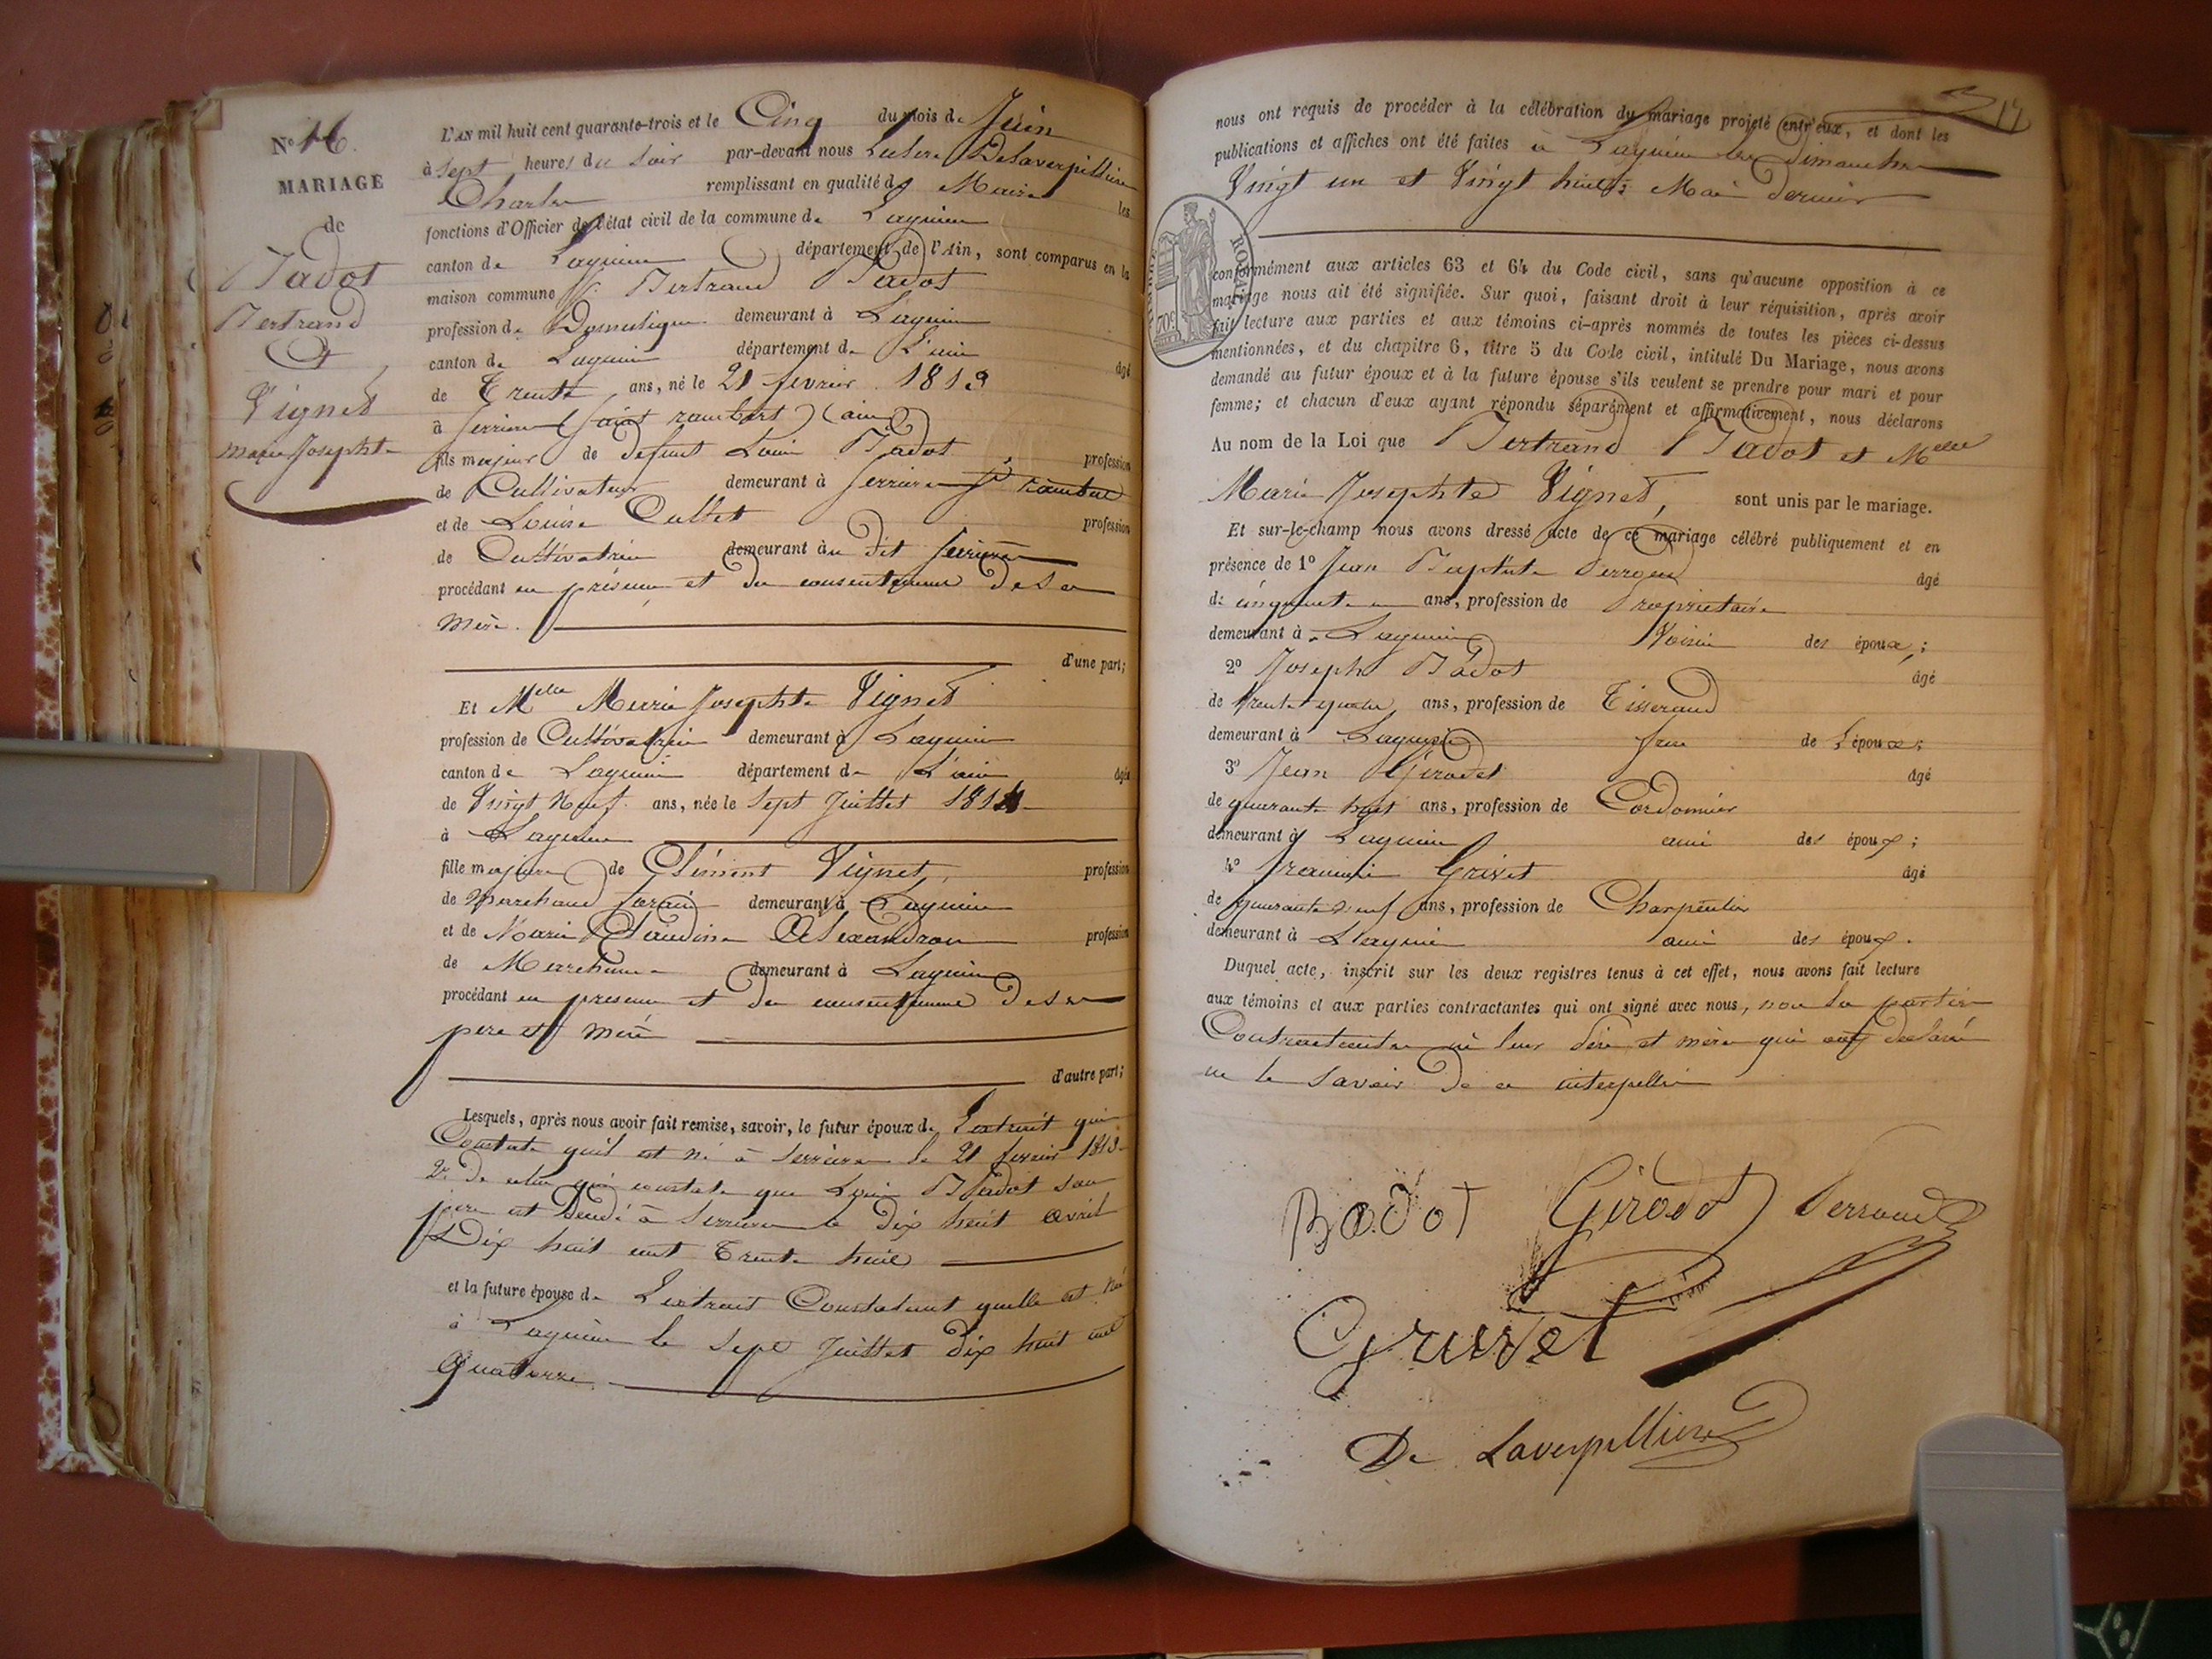 N° 16.
MARIAGE
de
Badot
Bertrand
&
Vignet
Marie Josephte
L'AN mil huit cent quarante-trois et le Cinq du mois de Juin
à sept heures du soir par-devant nous Delaverpillière
Charles remplissant en qualité de Maire les
fonctions d'Officier de l'état civil de la commune de Lagnieu
canton de Lagnieu département de l'Ain, sont comparus en la
maison commune Bertrand Badot
profession de Domestique demeurant à Lagnieu
canton de Lagnieu département de L'ain âgé
de Trente ans, né le 21 fevrier 1813
à Serrière (Saint rambert) (ain)
fils majeur de defunt Louis Badot profession
de Cultivateur demeurant à Serrière St rambert
et de Louise Cultet profession
de Cultivatrice demeurant au dit Serrière
procédant en présence et du consentement de sa
mère.
d'une part;
Et Melle Marie Josephte Vignet
profession de Cultivatrice demeurant à Lagnieu
canton de Lagnieu département de L'ain âgée
de Vingt Neuf ans, née le Sept Juillet 1814
à Lagnieu
fille majeure de Clément Vignet, profession
de Marchand forain demeurant à Lagnieu
et de Marie Claudine Alexandron profession
de Marchande demeurant à Lagnieu
procédant en presence et du consentement de ses
pere et mère
d'autre part;
Lesquels, après nous avoir fait remise, savoir, le futur époux de L'extrait qui
Constate qu'il est né à Serrière le 21 fevrier 1813
2° De celui qui constate que Louis Badot son
pere est décédé à Serriere le dix huit avril
Dix huit cent Trente huit
et la future épouse de L'extrait Constatant quelle est née
à Lagnieu le Sept Juillet dix huit cent
Quatorze.
17
nous ont requis de procéder à la célébration du mariage projeté entr'eux, et dont les
publications et affiches ont été faites à Lagnieu les Dimanches
Vingt un et Vingt huit Mai dernier
TIMBRE ROYAL
70c
conformément aux articles 63 et 64 du Code civil, sans qu'aucune opposition à ce
mariage nous ait été signifiée. Sur quoi, faisant droit à leur réquisition, après avoir
fait lecture aux parties et aux témoins ci-après nommés de toutes les pièces ci-dessus
mentionnées, et du chapitre 6, titre 5 du Code civil, intitulé Du Mariage, nous avons
demandé au futur époux et à la future épouse s'ils veulent se prendre pour mari et pour
femme; et chacun d'eux ayant répondu séparément et affirmativement, nous déclarons
Au nom de la Loi que Bertrand Badot et Melle
Marie Josephte Vignet, sont unis par le mariage.
Et sur-le-champ nous avons dressé acte de ce mariage célébré publiquement et en
présence de 1° Jean Baptiste Perroud âgé
de cinquante ans, profession de Propriétaire
demeurant à Lagnieu Voisin des époux;
2° Joseph Badot âgé
de trente quatre ans, profession de Tisserand
demeurant à Lagnieu frere de L'époux;
3° Jean Girodet âgé
de quarante huit ans, profession de Cordonnier
demeurant à Lagnieu ami des époux;
4° Grivet âgé
de quarante neuf ans, profession de Charpentier
demeurant à Lagnieu ami des époux.
Duquel acte, inscrit sur les deux registres tenus à cet effet, nous avons fait lecture
aux témoins et aux parties contractantes qui ont signé avec nous, non les parties
Contractantes ni leur père et mère qui ont declaré
ne le savoir de ce interpellés
Badot Girodet Perroud
Grivet
De Laverpilliere